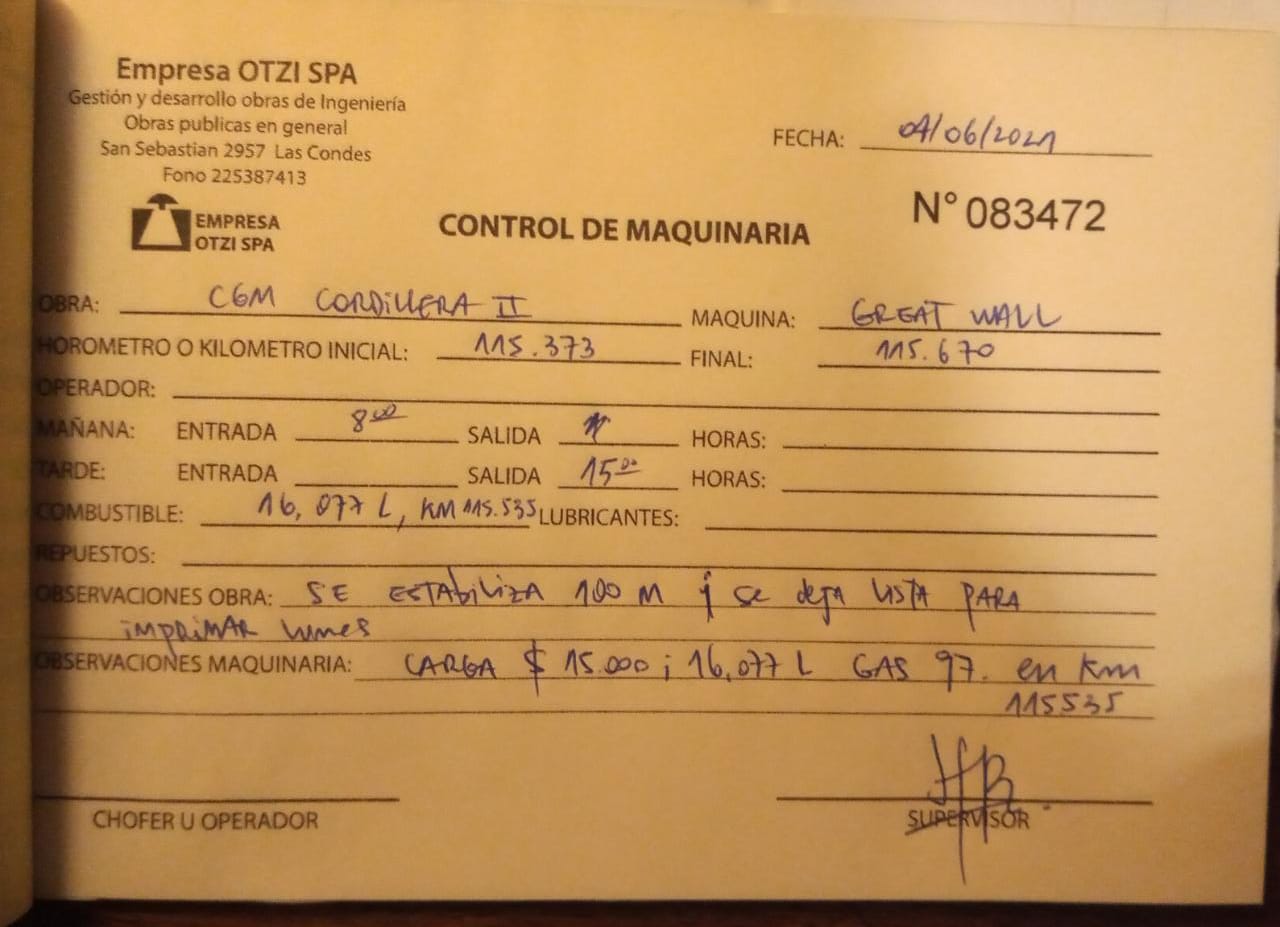 Empresa OTZI SPA
Gestión y desarrollo obras de Ingeniería
Obras publicas en general
San Sebastian 2957 Las Condes
Fono 225387413
EMPRESA
OTZI SPA
FECHA: 04/06/2021
N° 083472
CONTROL DE MAQUINARIA
OBRA: CGM CORDILLERA II MAQUINA: GREAT WALL
HOROMETRO O KILOMETRO INICIAL: 115.373 FINAL: 115.670
OPERADOR:
MAÑANA: ENTRADA 8⁰⁰ SALIDA HORAS:
TARDE: ENTRADA SALIDA 15⁰⁰ HORAS:
COMBUSTIBLE: 16,077 L, KM 115.535 LUBRICANTES:
REPUESTOS:
OBSERVACIONES OBRA: SE ESTABILIZA 100 M y se deja LISTA PARA
IMPRIMAR LUNES
OBSERVACIONES MAQUINARIA: CARGA $ 15.000; 16,077 L GAS 97. en Km
115535
CHOFER U OPERADOR SUPERVISOR